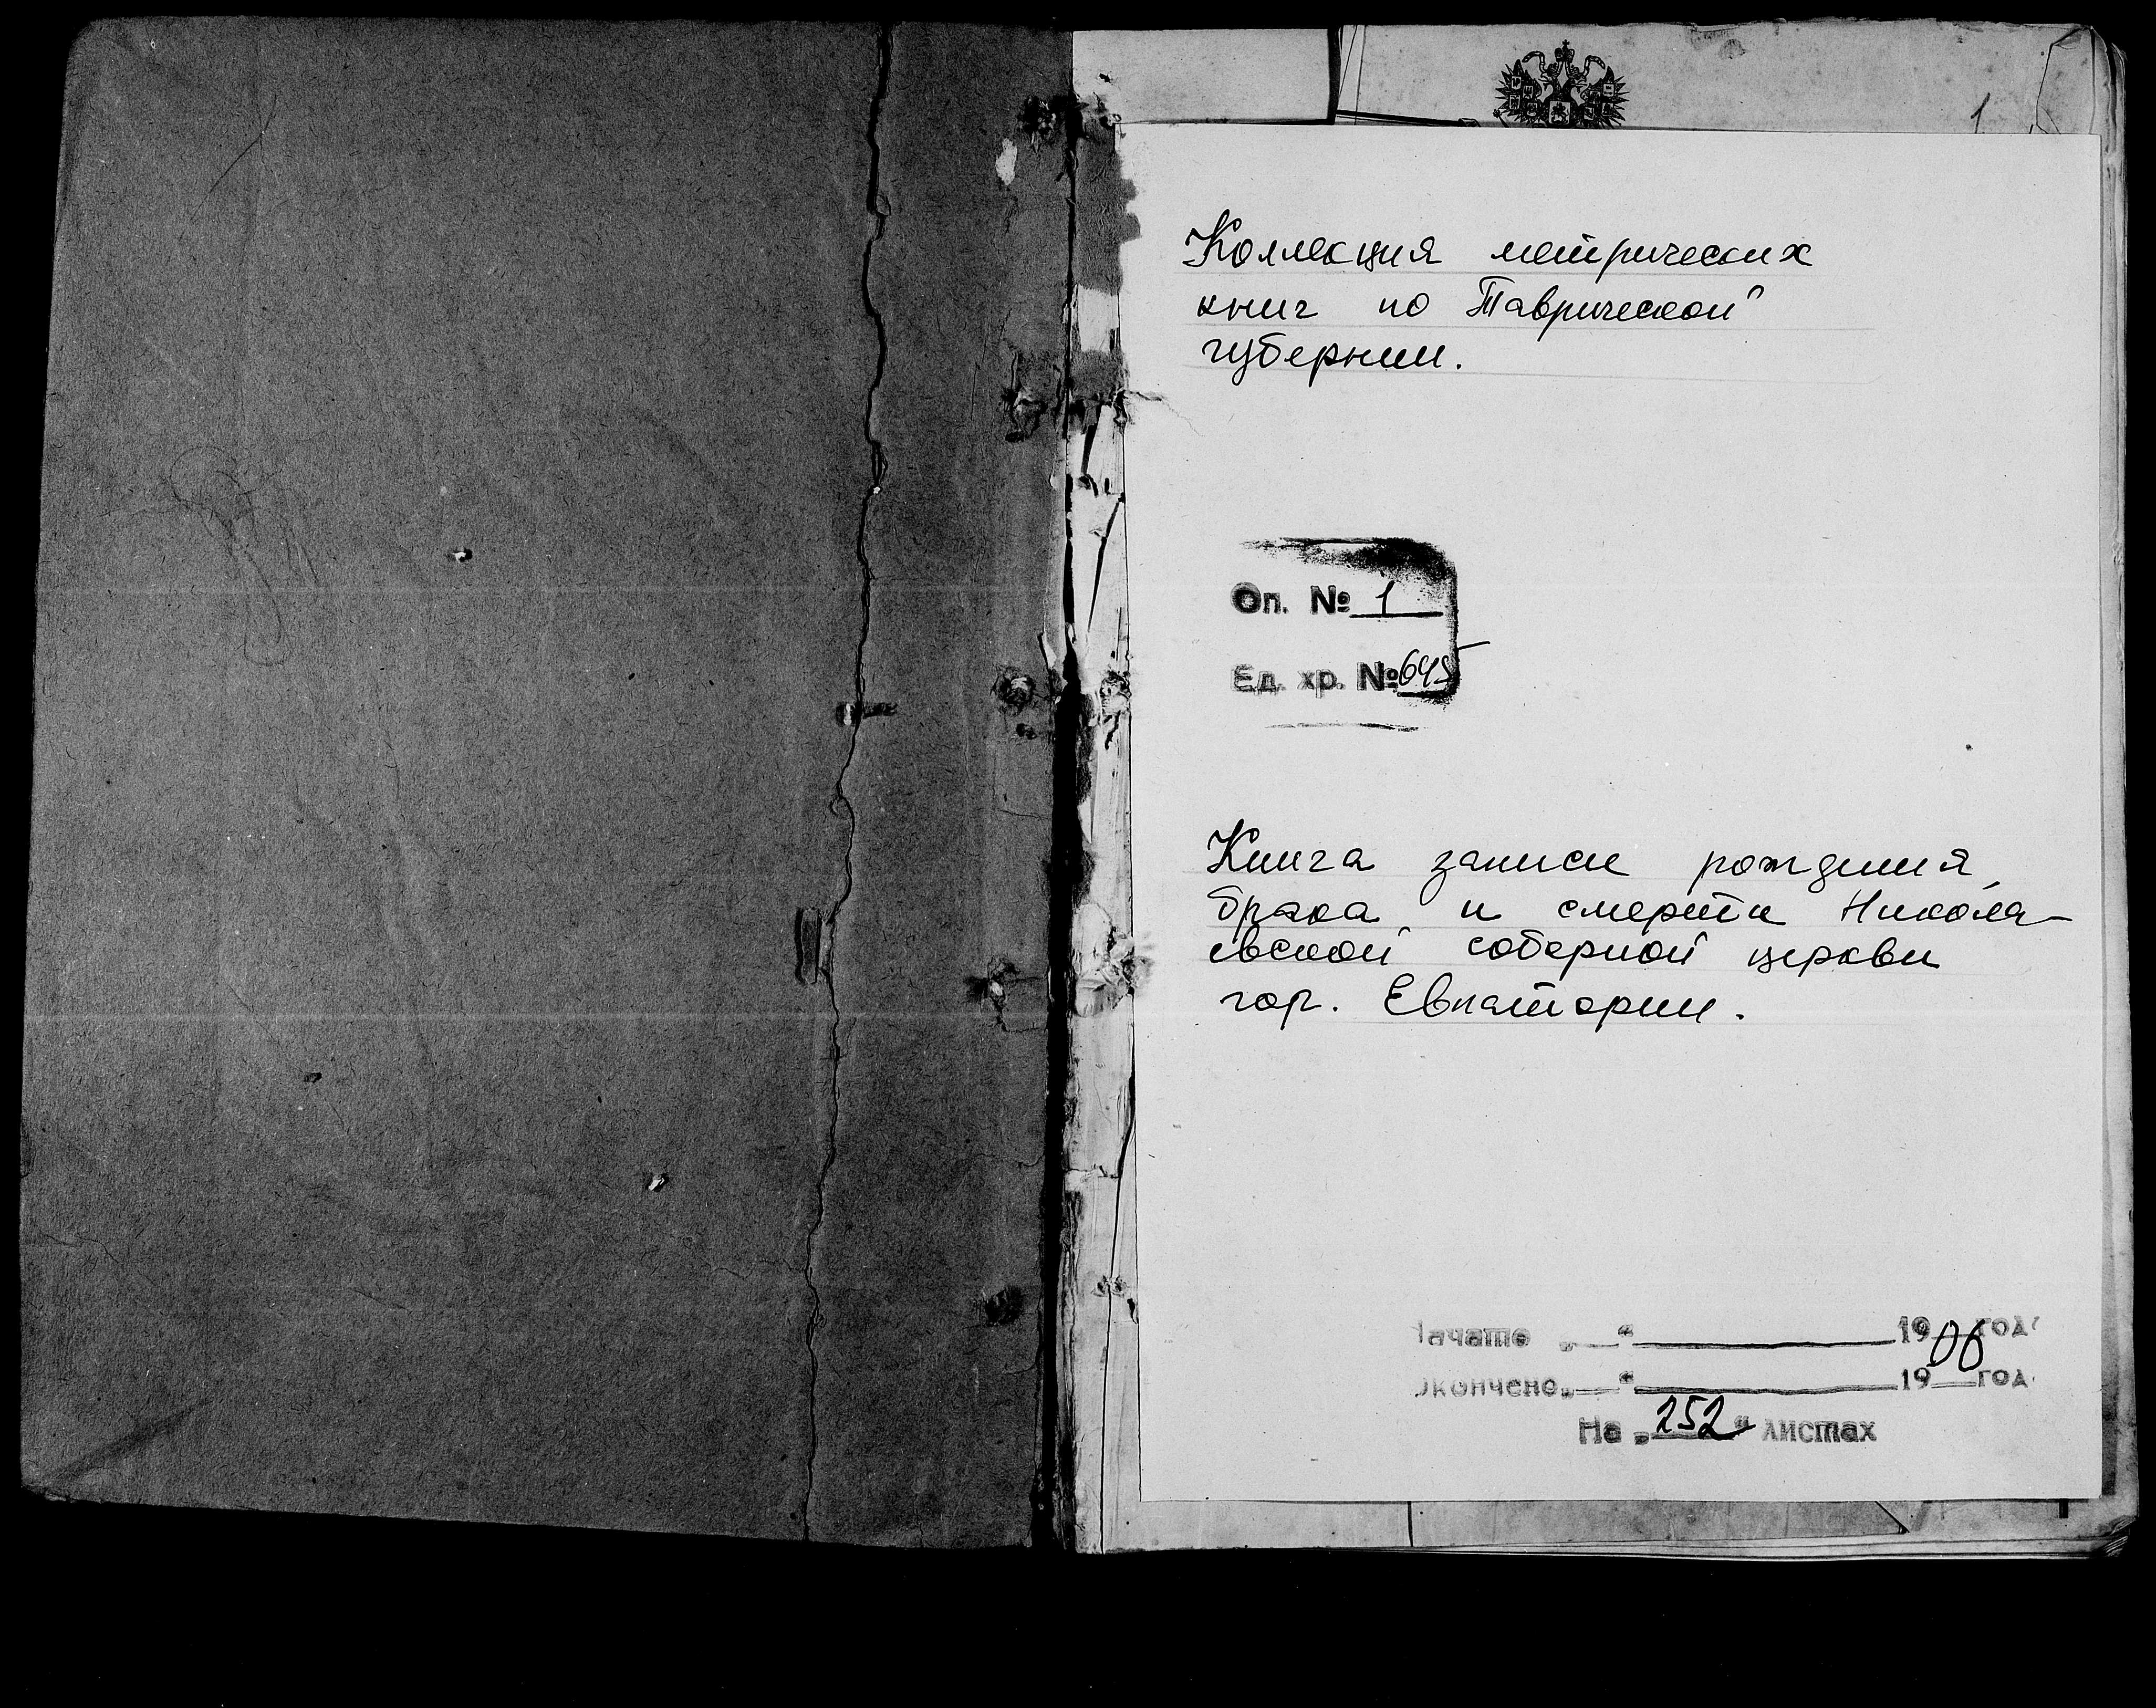 1
Коллекция метрических
книг по Таврической
губернии.
Оп. № 1
Ед. хр. № 645
Книга записи рождения,
брака и смерти Никола-
евской соборной церкви
гор. Евпатории.
Начато „ “ 1906 года
Окончено „ “ 19 год
На „252“ листах